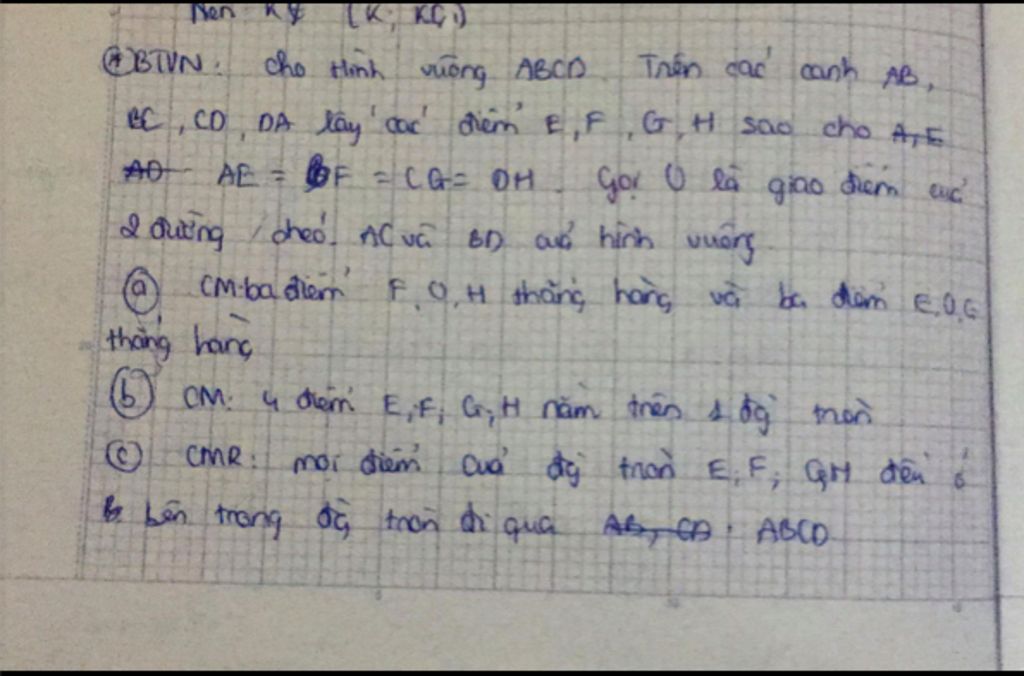 Nên K∉ (K; KC₁)
* BTVN: cho Hình vuông ABCD. Trên các cạnh AB,
BC, CD, DA lấy các điểm E, F, G, H sao cho A, E
AD AE = BF = CG = DH. Gọi O là giao điểm của
2 đường chéo AC và BD của hình vuông.
a) CM: ba điểm F, O, H thẳng hàng và ba điểm E, O, G
thẳng hàng
b) CM: 4 điểm E, F, G, H nằm trên 1 đg tròn
c) CMR: mọi điểm của đg tròn E, F, G, H đều ở
bên trong đg tròn đi qua AB, CD. ABCD